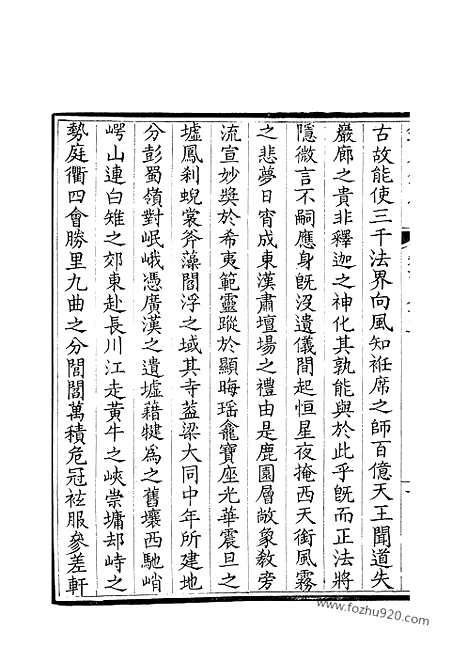 古故能使三千法界向風知袵席之師百億天王聞道失
巖廊之貴非釋迦之神化其孰能與於此乎旣而正法將
隱微言不嗣應身旣沒遺儀間起恒星夜掩西天銜風霧
之悲夢日宵成東漢肅壇場之禮由是鹿園層敞象敎旁
流宣妙奬於希夷範靈蹤於顯晦瑶龕寶座光華震旦之
墟鳳刹蜺裳斧藻閻浮之域其寺葢梁大同中年所建地
分彭蜀嶺對岷峨憑廣漢之遺墟藉犍為之舊壤西馳峭
崿山連白雉之郊東赴長川江走黃牛之峽崇墉却峙之
勢庭衢四會勝里九曲之分閭閻萬積危冠袨服參差軒
www.fozhu920.com